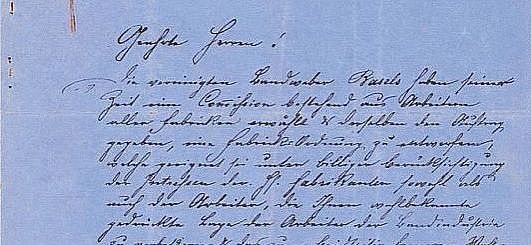 Geehrte Herren!
Die vereinigten Bandweber Basels haben seiner
Zeit eine Comission bestehend aus Arbeitern
aller Fabriken erwählt & derselben den Auftrag
gegeben, eine Fabrik-Ordnung zu entwerfen,
welche geeignet sei unter billiger Berücksichtigung
der Interessen der H. Fabrikanten sowohl als
auch der Arbeiter, die Ihnen wohlbekannte
gedrückte Lage der Arbeiter der Bandindustrie
zu